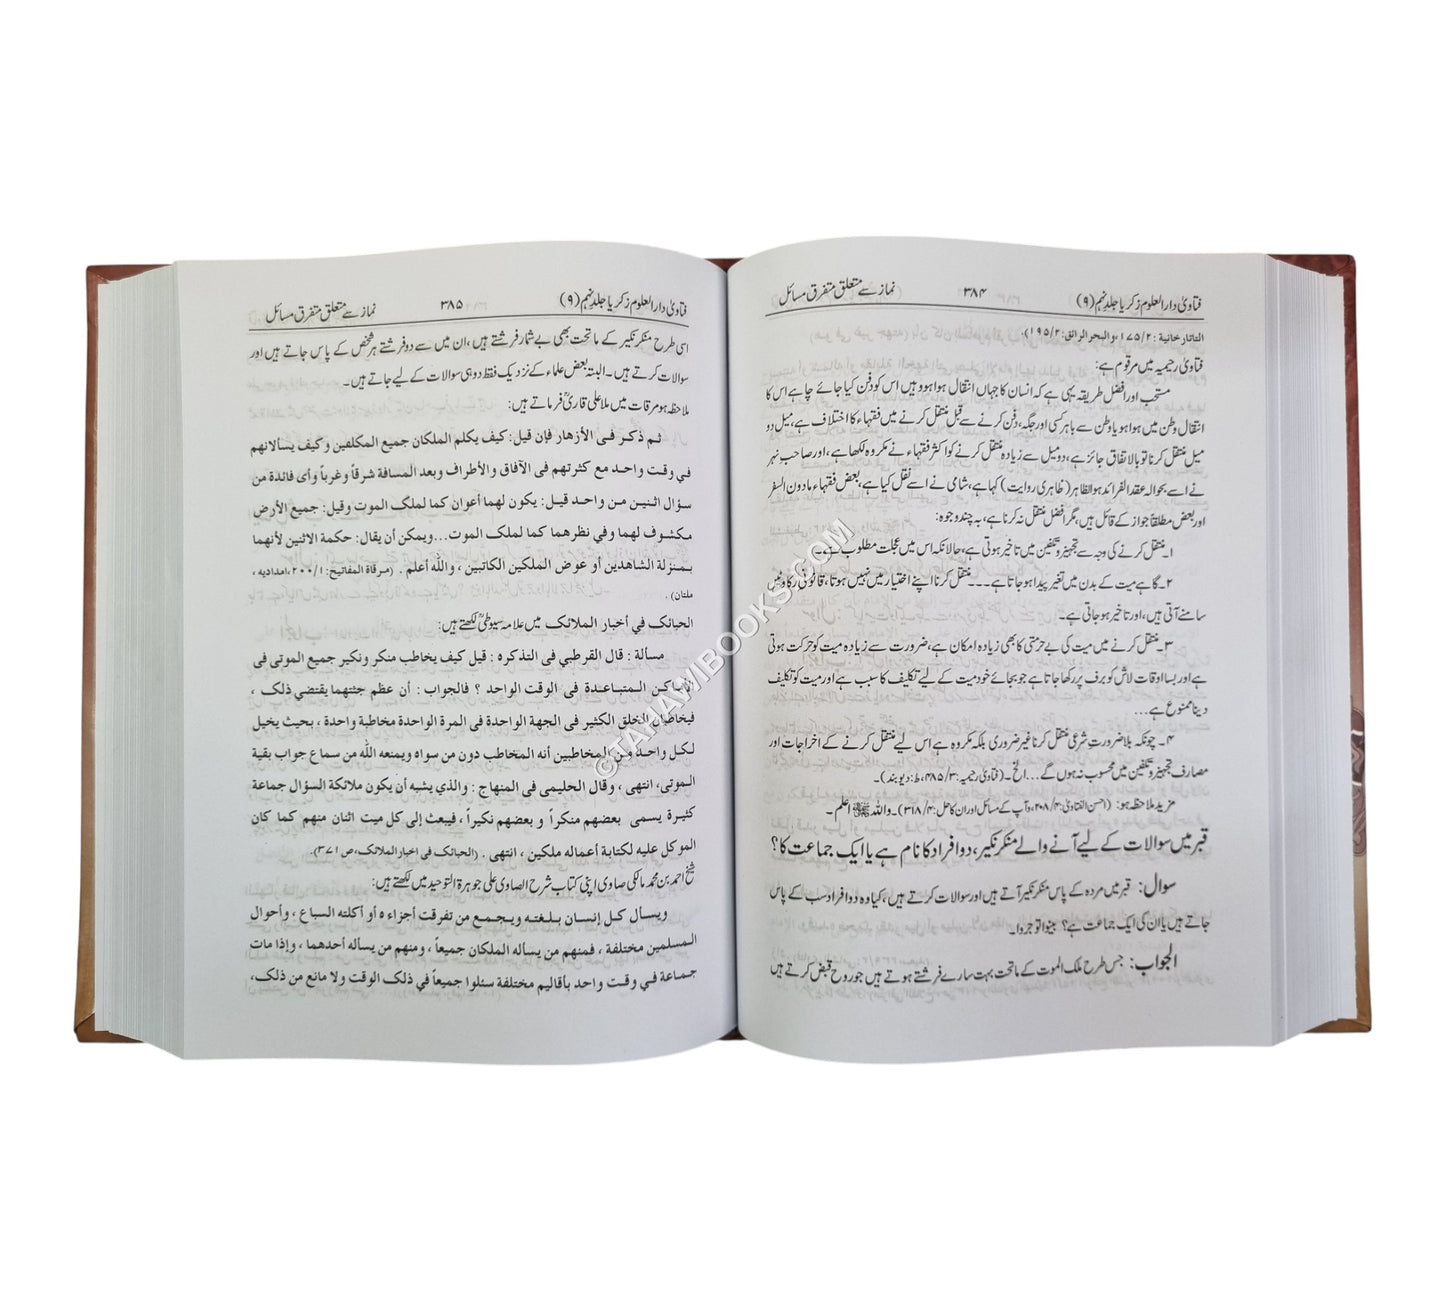 فتاویٰ دارالعلوم زکریا جلد نہم (۹) ۳۸۴ نماز سے متعلق متفرق مسائل
التاتارخانية: ۱۷۵/۲، والبحر الرائق: ۱۹۵/۲).
فتاویٰ رحیمیہ میں مرقوم ہے:
مستحب اور افضل طریقہ یہی ہے کہ انسان کا جہاں انتقال ہوا ہو وہیں اس کو دفن کیا جائے چاہے اس کا
انتقال وطن میں ہوا ہو یا وطن سے باہر کسی اور جگہ، دفن کرنے سے قبل منتقل کرنے میں فقہاء کا اختلاف ہے، میل دو
میل منتقل کرنا تو بالاتفاق جائز ہے، دو میل سے زیادہ منتقل کرنے کو اکثر فقہاء نے مکروہ لکھا ہے، اور صاحب نہر
نے اسے بحوالہ عقد الفرائد ہوالظاہر (ظاہری روایت) کہا ہے، شامی نے اسے نقل کیا ہے، بعض فقہاء مادون السفر
اور بعض مطلقاً جواز کے قائل ہیں، مگر افضل منتقل نہ کرنا ہے، بہ چند وجوہ:
۱۔ منتقل کرنے کی وجہ سے تجہیز و تکفین میں تاخیر ہوتی ہے، حالانکہ اس میں عجلت مطلوب ہے۔
۲۔ گاہے میت کے بدن میں تغیر پیدا ہو جاتا ہے۔۔۔ منتقل کرنا اپنے اختیار میں نہیں ہوتا، قانونی رکاوٹیں
سامنے آتی ہیں، اور تاخیر ہو جاتی ہے۔
۳۔ منتقل کرنے میں میت کی بے حرمتی کا بھی زیادہ امکان ہے، ضرورت سے زیادہ میت کو حرکت ہوتی
ہے اور بسا اوقات لاش کو برف پر رکھا جاتا ہے جو بجائے خود میت کے لیے تکلیف کا سبب ہے اور میت کو تکلیف
دینا ممنوع ہے...
۴۔ چونکہ بلاضرورت شرعی منتقل کرنا غیر ضروری بلکہ مکروہ ہے اس لیے منتقل کرنے کے اخراجات اور
مصارف تجہیز و تکفین میں محسوب نہ ہوں گے... الخ۔ (فتاویٰ رحیمیہ: ۴۸۵/۳، ط: دیوبند)۔
مزید ملاحظہ ہو: (احسن الفتاویٰ: ۲۰۸/۴، وآپ کے مسائل اور ان کا حل: ۳۱۸/۴)۔ واللہ ﷻ اعلم۔
قبر میں سوالات کے لیے آنے والے منکر نکیر، دو افراد کا نام ہے یا ایک جماعت کا؟
سوال: قبر میں مردہ کے پاس منکر نکیر آتے ہیں اور سوالات کرتے ہیں، کیا وہ دو افراد سب کے پاس
جاتے ہیں یا ان کی ایک جماعت ہے؟ بینوا توجروا۔
الجواب: جس طرح ملک الموت کے ماتحت بہت سارے فرشتے ہوتے ہیں جو روح قبض کرتے ہیں
فتاویٰ دارالعلوم زکریا جلد نہم (۹) ۳۸۵ نماز سے متعلق متفرق مسائل
اسی طرح منکر نکیر کے ماتحت بھی بے شمار فرشتے ہیں، ان میں سے دو فرشتے ہر شخص کے پاس جاتے ہیں اور
سوالات کرتے ہیں۔ البتہ بعض علماء کے نزدیک فقط دو ہی سوالات کے لیے جاتے ہیں۔
ملاحظہ ہو مرقات میں ملا علی قاریؒ فرماتے ہیں:
ثم ذكر فى الأزهار فإن قيل: كيف يكلم الملكان جميع المكلفين وكيف يسألانهم
فى وقت واحد مع كثرتهم فى الآفاق والأطراف وبعد المسافة شرقاً وغرباً وأى فائدة من
سؤال اثنين من واحد قيل: يكون لهما أعوان كما لملك الموت وقيل: جميع الأرض
مكشوف لهما وفي نظرهما كما لملك الموت...ويمكن أن يقال: حكمة الاثنين لأنهما
بمنزلة الشاهدين أو عوض الملكين الكاتبين، والله أعلم. (مرقاة المفاتيح: ۲۰۰/۱، امداديه،
ملتان).
الحبائک في أخبار الملائک میں علامہ سیوطیؒ لکھتے ہیں:
مسألة: قال القرطبي فى التذكره: قيل كيف يخاطب منكر ونكير جميع الموتى فى
الأماكن المتباعدة فى الوقت الواحد؟ فالجواب: أن عظم جثتهما يقتضي ذلك،
فيخاطبان الخلق الكثير فى الجهة الواحدة فى المرة الواحدة مخاطبة واحدة، بحيث يخيل
لكل واحد من المخاطبين أنه المخاطب دون من سواه ويمنعه الله من سماع جواب بقية
الموتى، انتهى، وقال الحليمى فى المنهاج: والذي يشبه أن يكون ملائكة السؤال جماعة
كثيرة يسمى بعضهم منكراً و بعضهم نكيراً، فيبعث إلى كل ميت اثنان منهم كما كان
الموكل عليه لكتابة أعماله ملكين، انتهى. (الحبائك فى اخبار الملائك، ص ۳۷۱).
شیخ احمد بن محمد مالکی صاوی اپنی کتاب شرح الصاوی علی جوہرۃ التوحید میں لکھتے ہیں:
ويسأل كل إنسان بلغته ويجمع من تفرقت أجزاءه أو أكلته السباع، وأحوال
المسلمين مختلفة، فمنهم من يسأله الملكان جميعاً، ومنهم من يسأله أحدهما، وإذا مات
جماعة في وقت واحد بأقاليم مختلفة سئلوا جميعاً في ذلك الوقت ولا مانع من ذلك،
©TAHAWIBOOKS.COM